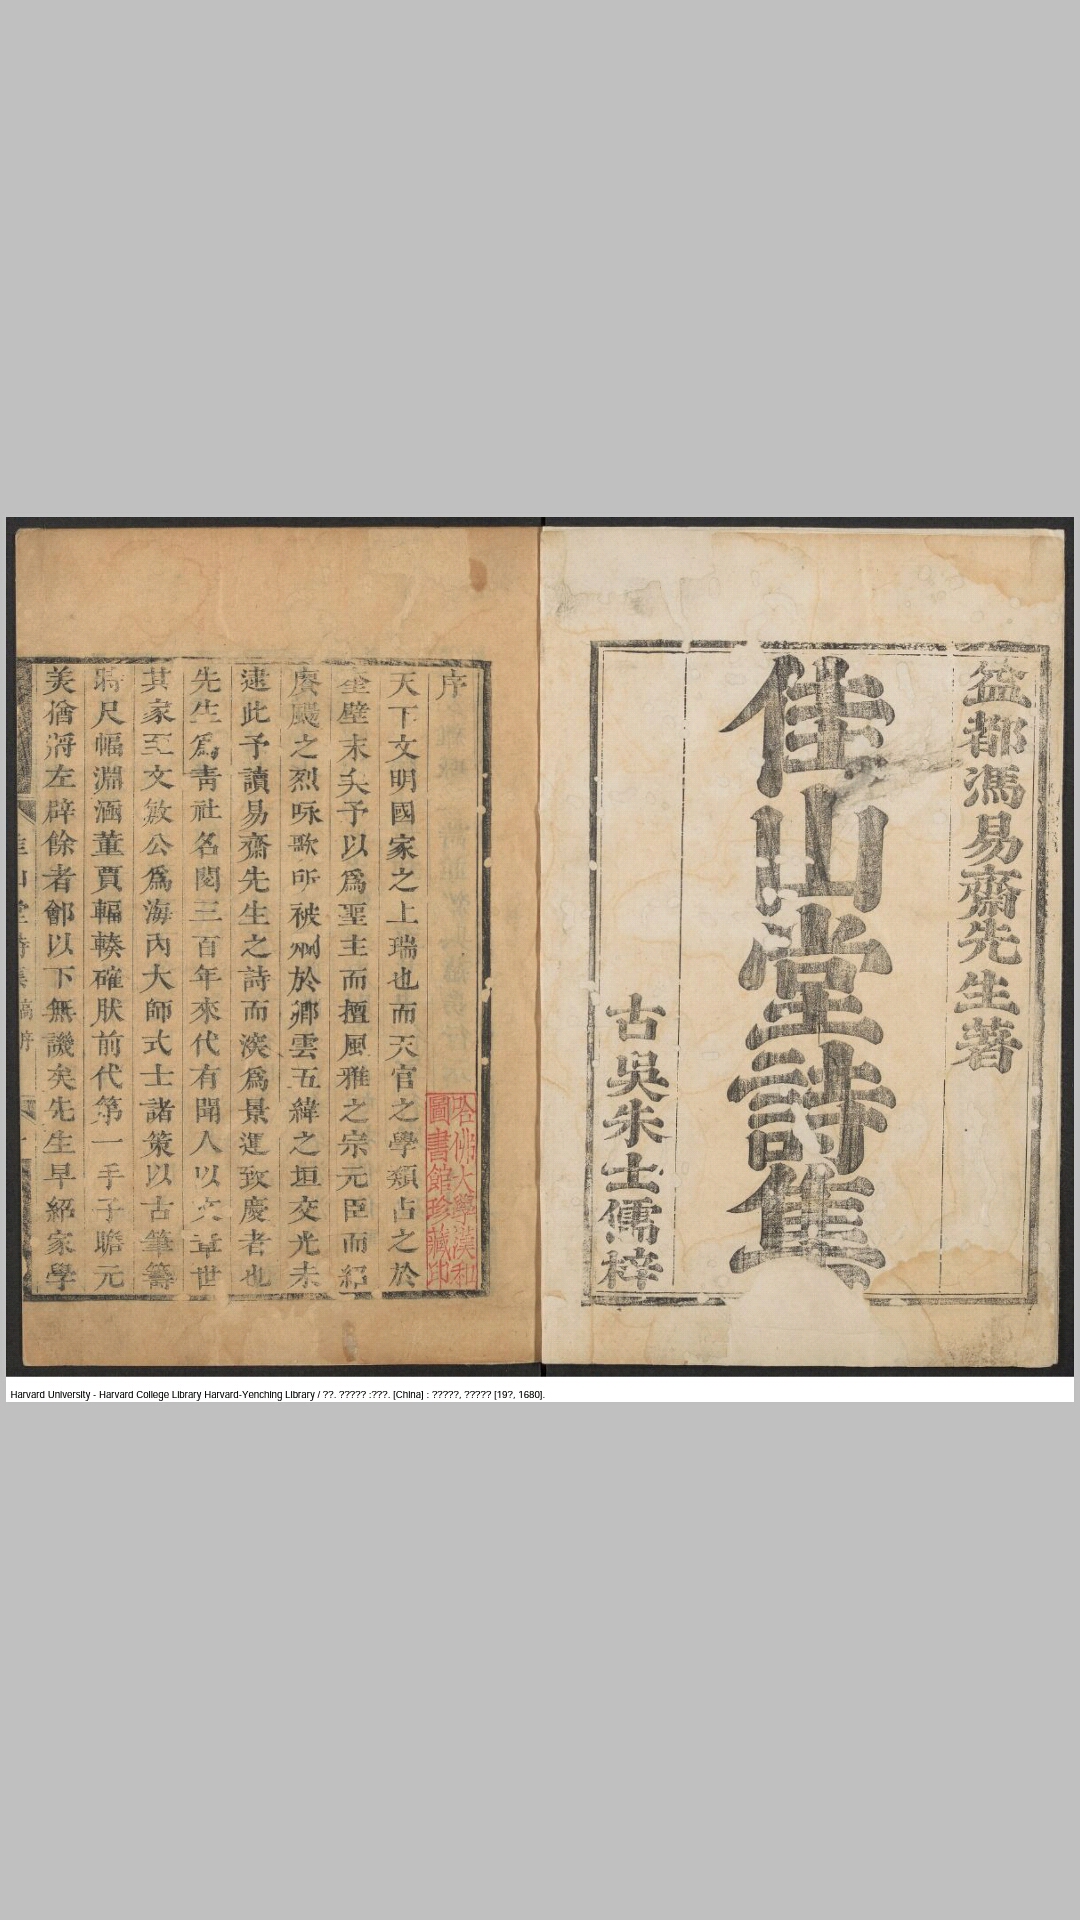 益都馮易齋先生著
佳山堂詩集
古吳朱士儒梓
序
天下文明國家之上瑞也而天官之學類占之於
奎壁末矣予以爲聖主而擅風雅之宗元臣而紹
賡颺之烈咏歌所被爛於卿雲五緯之垣交光未
逮此予讀易齋先生之詩而渙爲景運致慶者也
先生爲靑社名閥三百年來代有聞人以文章世
其家至文敏公爲海內大師式士諸策以古筆籌
時尺幅淵涵董賈輻輳確肰前代第一手子瞻元
美猶將左辟餘者鄶以下無譏矣先生早紹家學
哈佛大學漢和
圖書館珍藏印
Harvard University - Harvard College Library Harvard-Yenching Library / ??. ????? :???. [China] : ?????, ????? [19?, 1680].